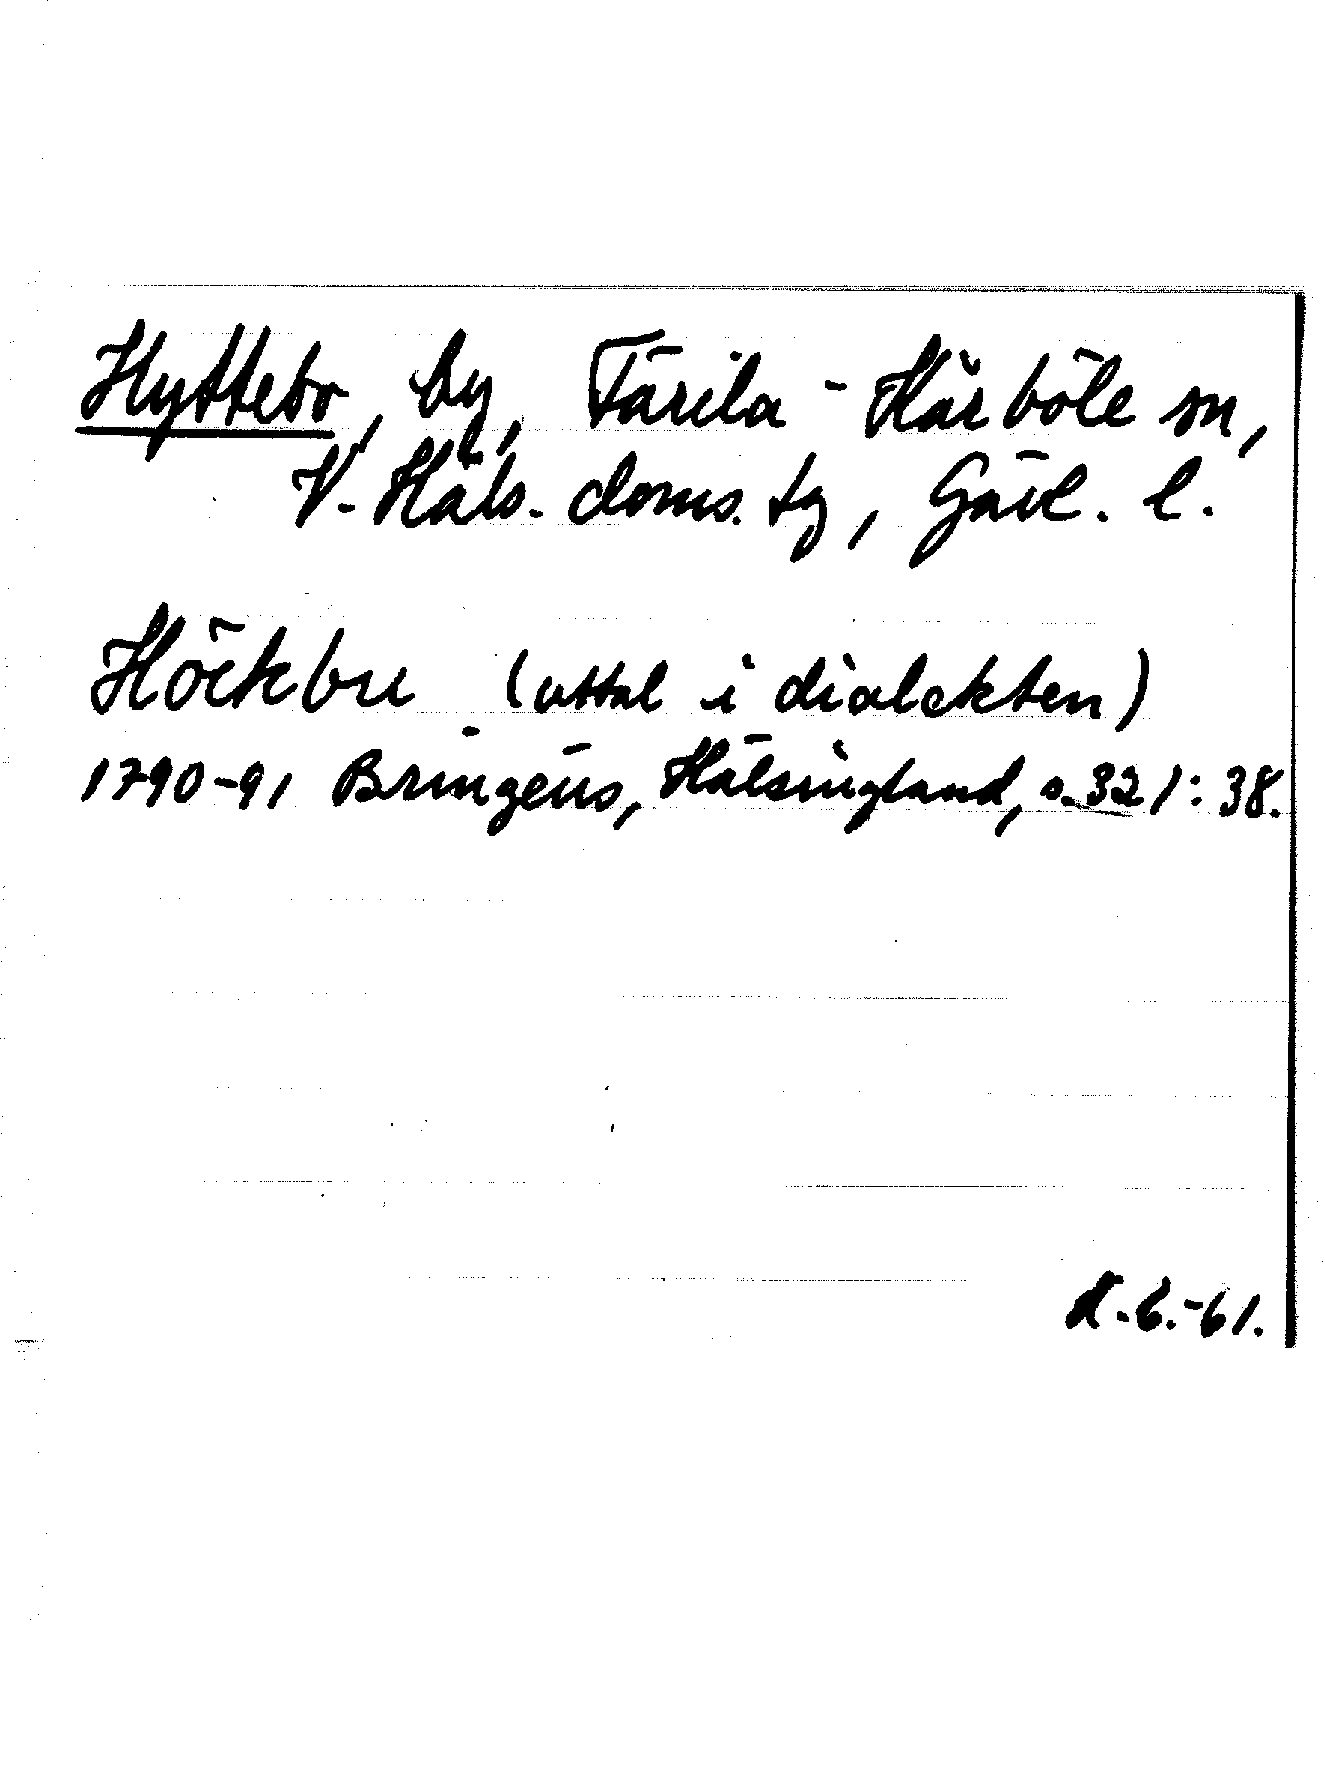 Hyttebo, by, Färila-Kårböle sn,
V. Häls. doms. tg, Gävl. l.
Höckbu (uttal i dialekten)
1790-91 Bringéus, Hälsingland, s. 32 1: 38.
K.6.-61.